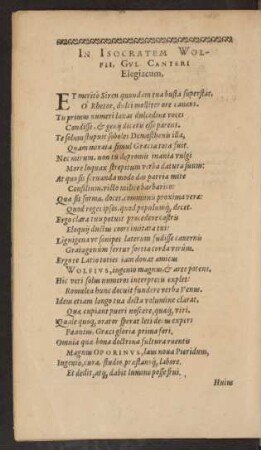 IN ISOCRATEM WOL-
FII, GVL. CANTERI
Elegiacum.
ET meritò Siren quondam tua busta superstat,
O Rhetor, dulci molliter ore canens.
Tu primus numeri laxas dulcedine voces
Condisse, & gerij diceris isse parens.
Te solum stupuit soboles Demosthenis illa,
Quam mirata simul Græcia tota fuit.
Nec mirum. non tu depromis inania vulgi
More loquax strepitum verba datura suum:
At quo sit seruanda modo das patria mite
Consilium, risto milite barbarico:
Quæ sit forma, doces, communis proxima veræ:
Quod reges ipsos, quod populumq́, decet.
Ergo clara tuo potuit procedere castris
Eloquij dulcis copia imitata tui:
Lignigena vt sonipes laterum sudisse cauernis
Graiugenum fertur fortia corda virûm.
Ergo te Latio ciues iam donat amicus
WOLFIVS, ingenio magnus, & arte potens.
Hic veri solus numeros interpretis explet:
Romulea hunc docuit fundere verba Venus.
Idem etiam longo tua dicta volumine clarat,
Quæ cupiant pueri noscere, quæq́, viri.
Quale quoq́, orator sperat leri demum expere
Pæanius, Graeci gloria prima fori,
Omnia quæ bona doctrina fultura nouentis
Magnus OPORINVS, laus noua Pieridum,
Ingenio, cura, studio præstansq́, labore,
Et dedit, atq́, dabit lumine posse frui.
Huius